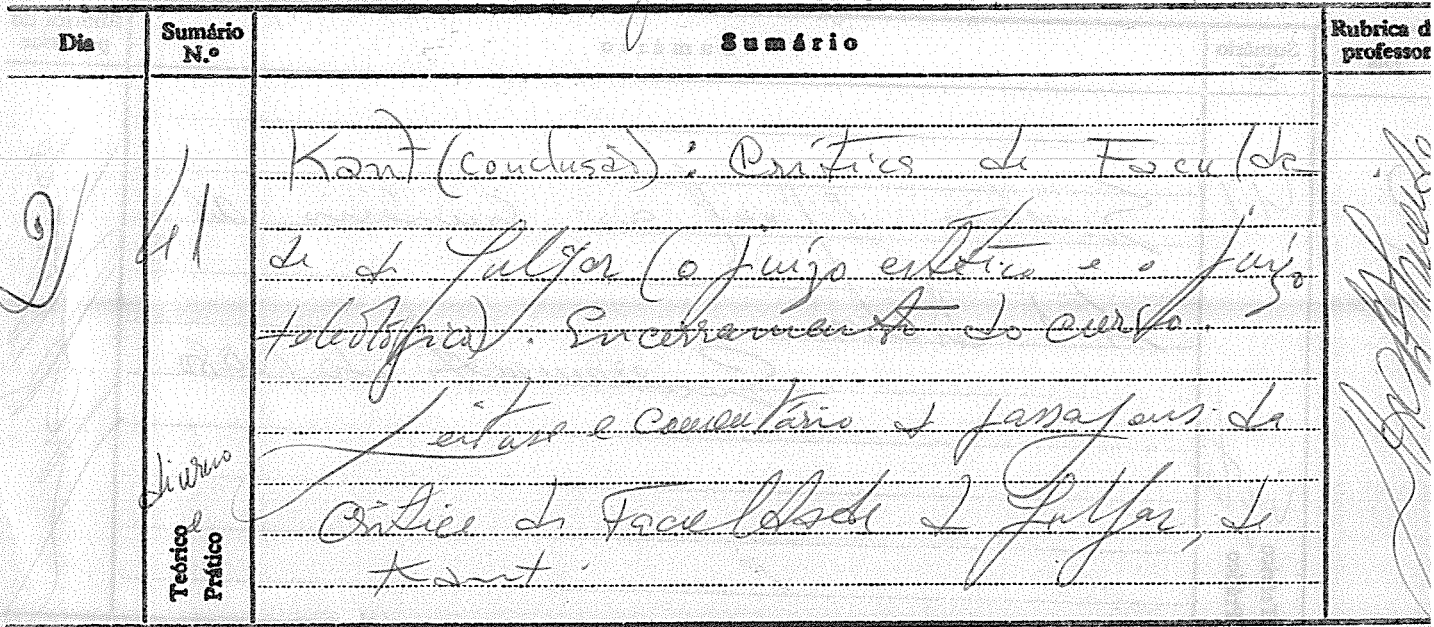 Dia
Sumário
N.º
Sumário
Rubrica d
professor
2
41
Kant (conclusão): Crítica da Faculda-
de de Julgar (o juízo estético e o juízo
teleológico). Encerramento do curso.
Leitura e comentário de passagens da
Crítica da Faculdade de Julgar, de
Kant.
diurno
Teórico e
Prático